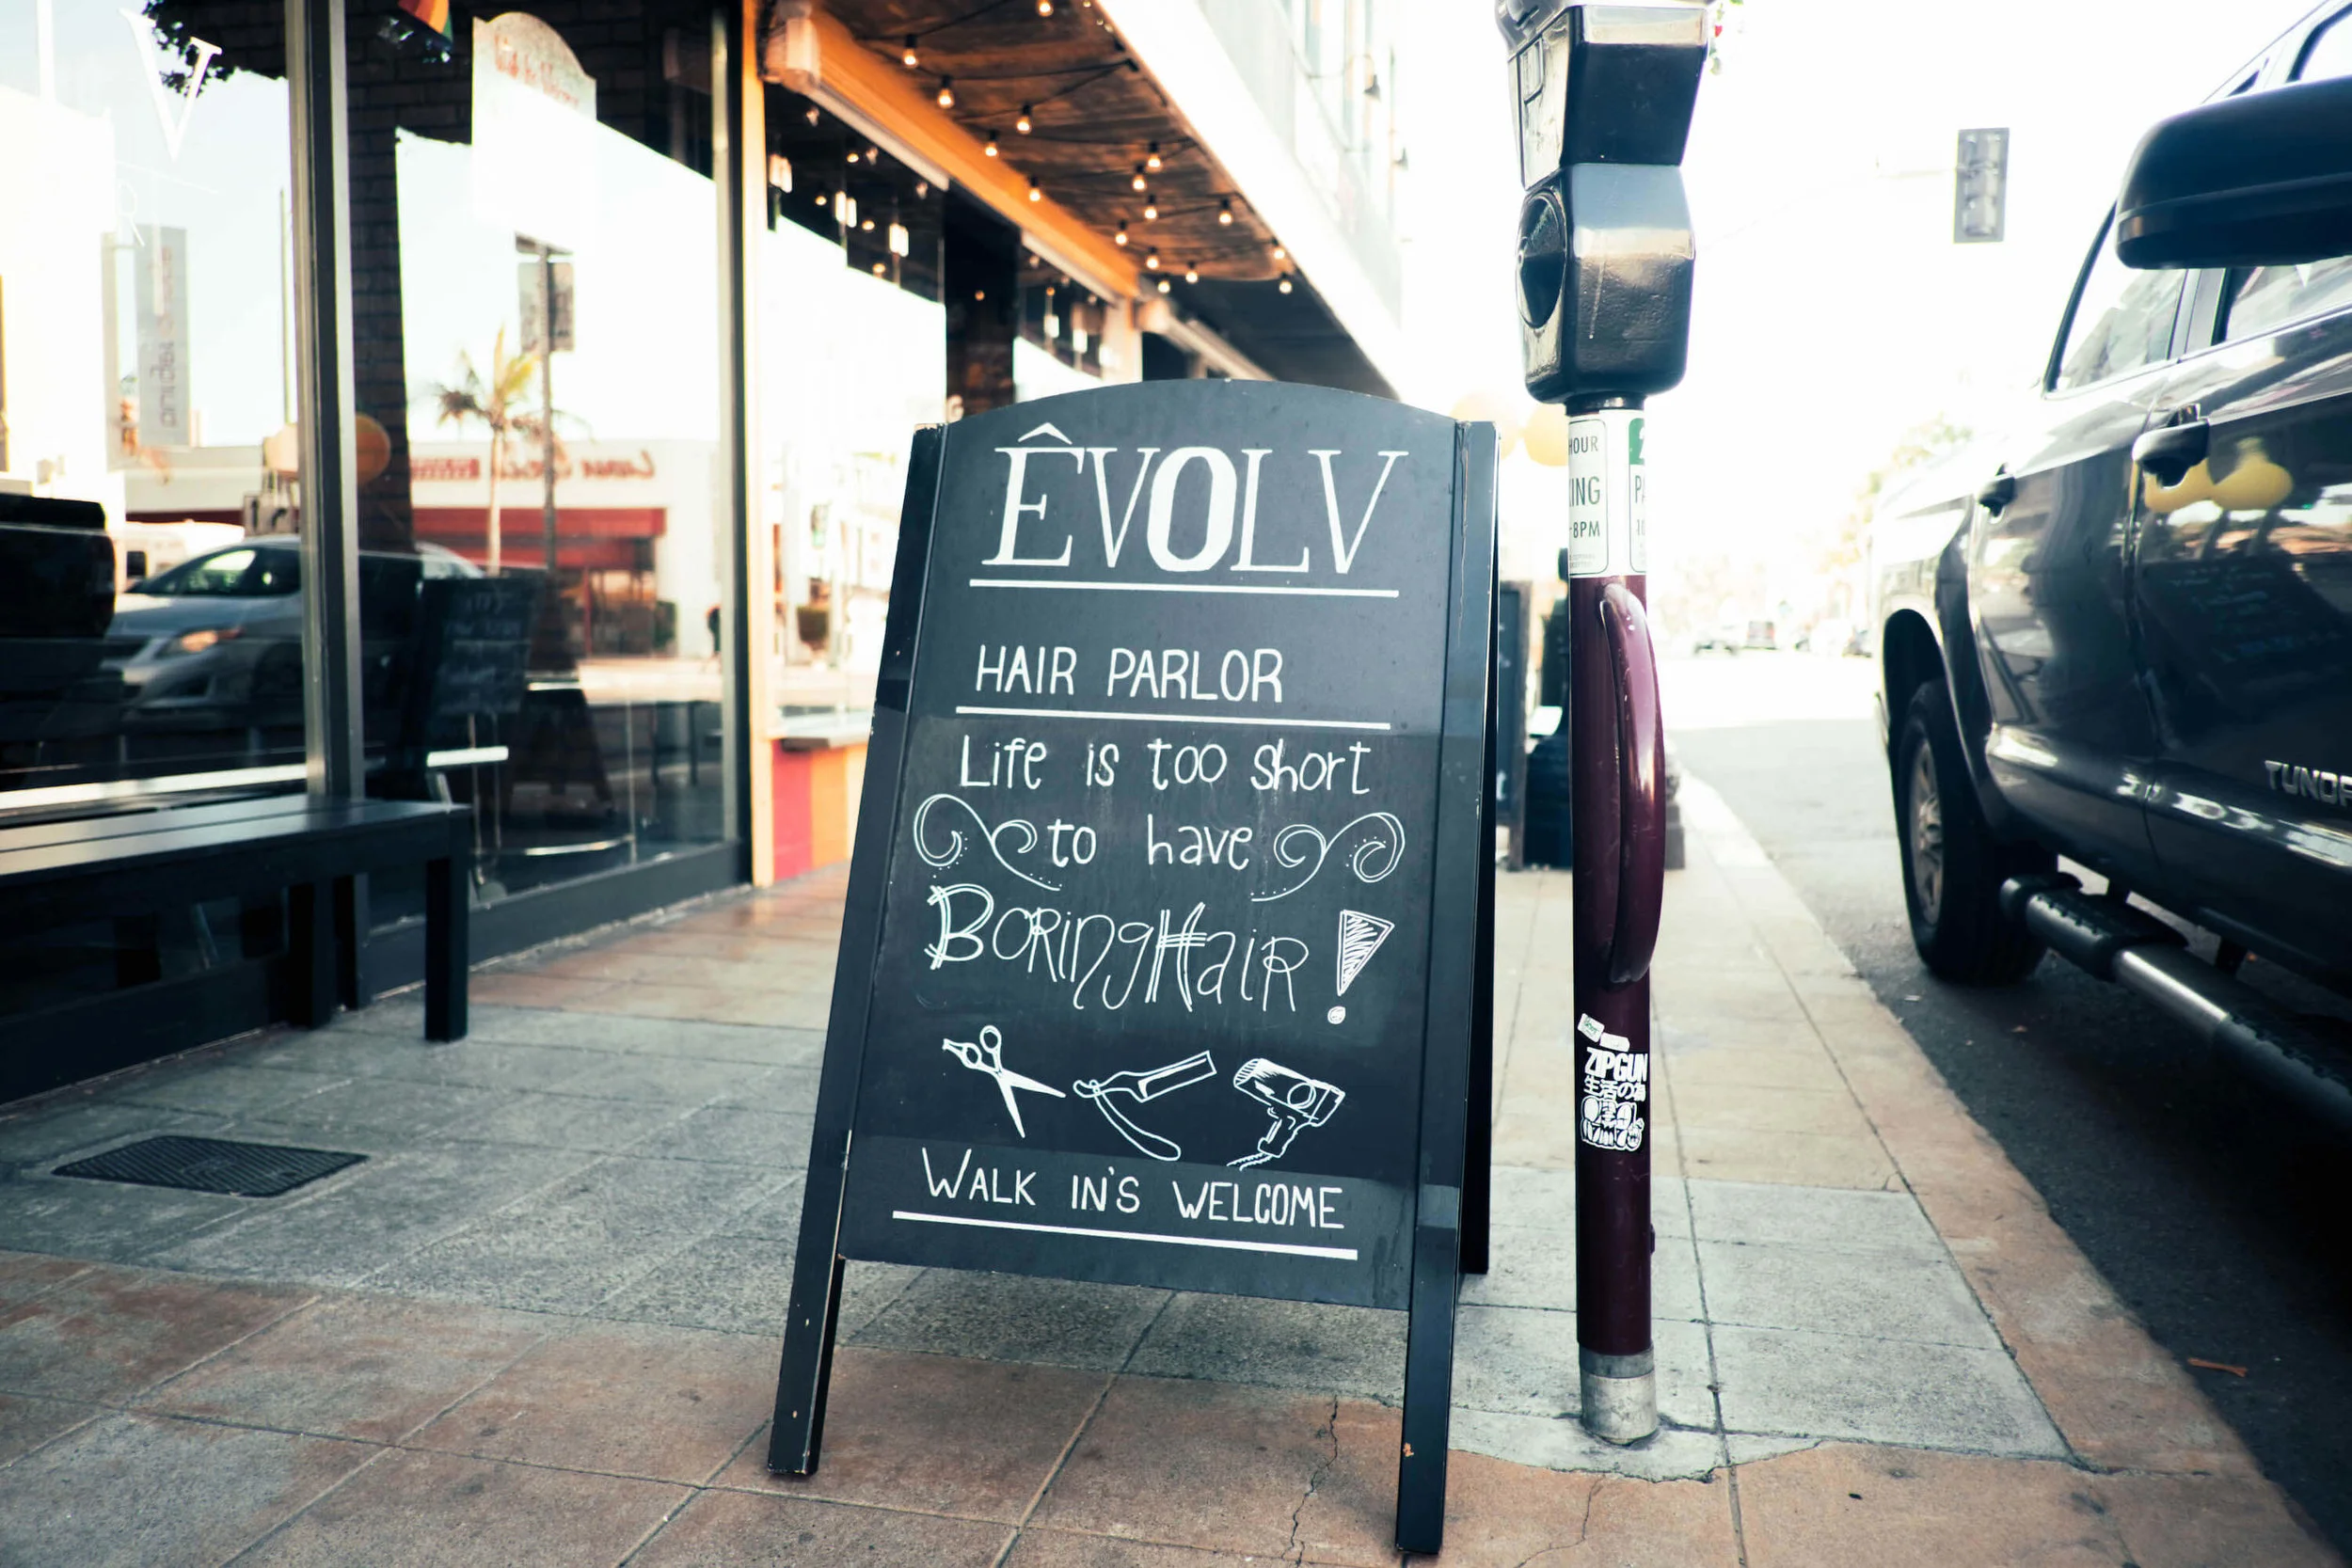 ÊVOLV
HAIR PARLOR
Life is too short
to have
BoringHair!
WALK IN'S WELCOME
HOUR
-8PM
ZIPGUN
TUNDR
V